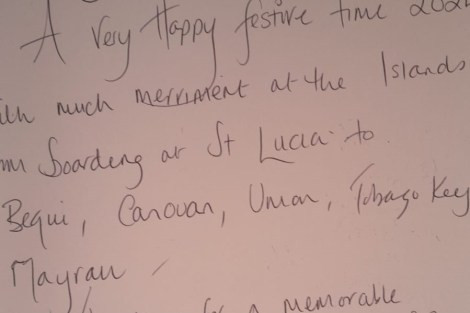 A Very Happy festive time
much merriment at the Islands
boarding at St Lucia to
Bequi, Canouan, Union, Tobago Keys
Mayrau
a memorable